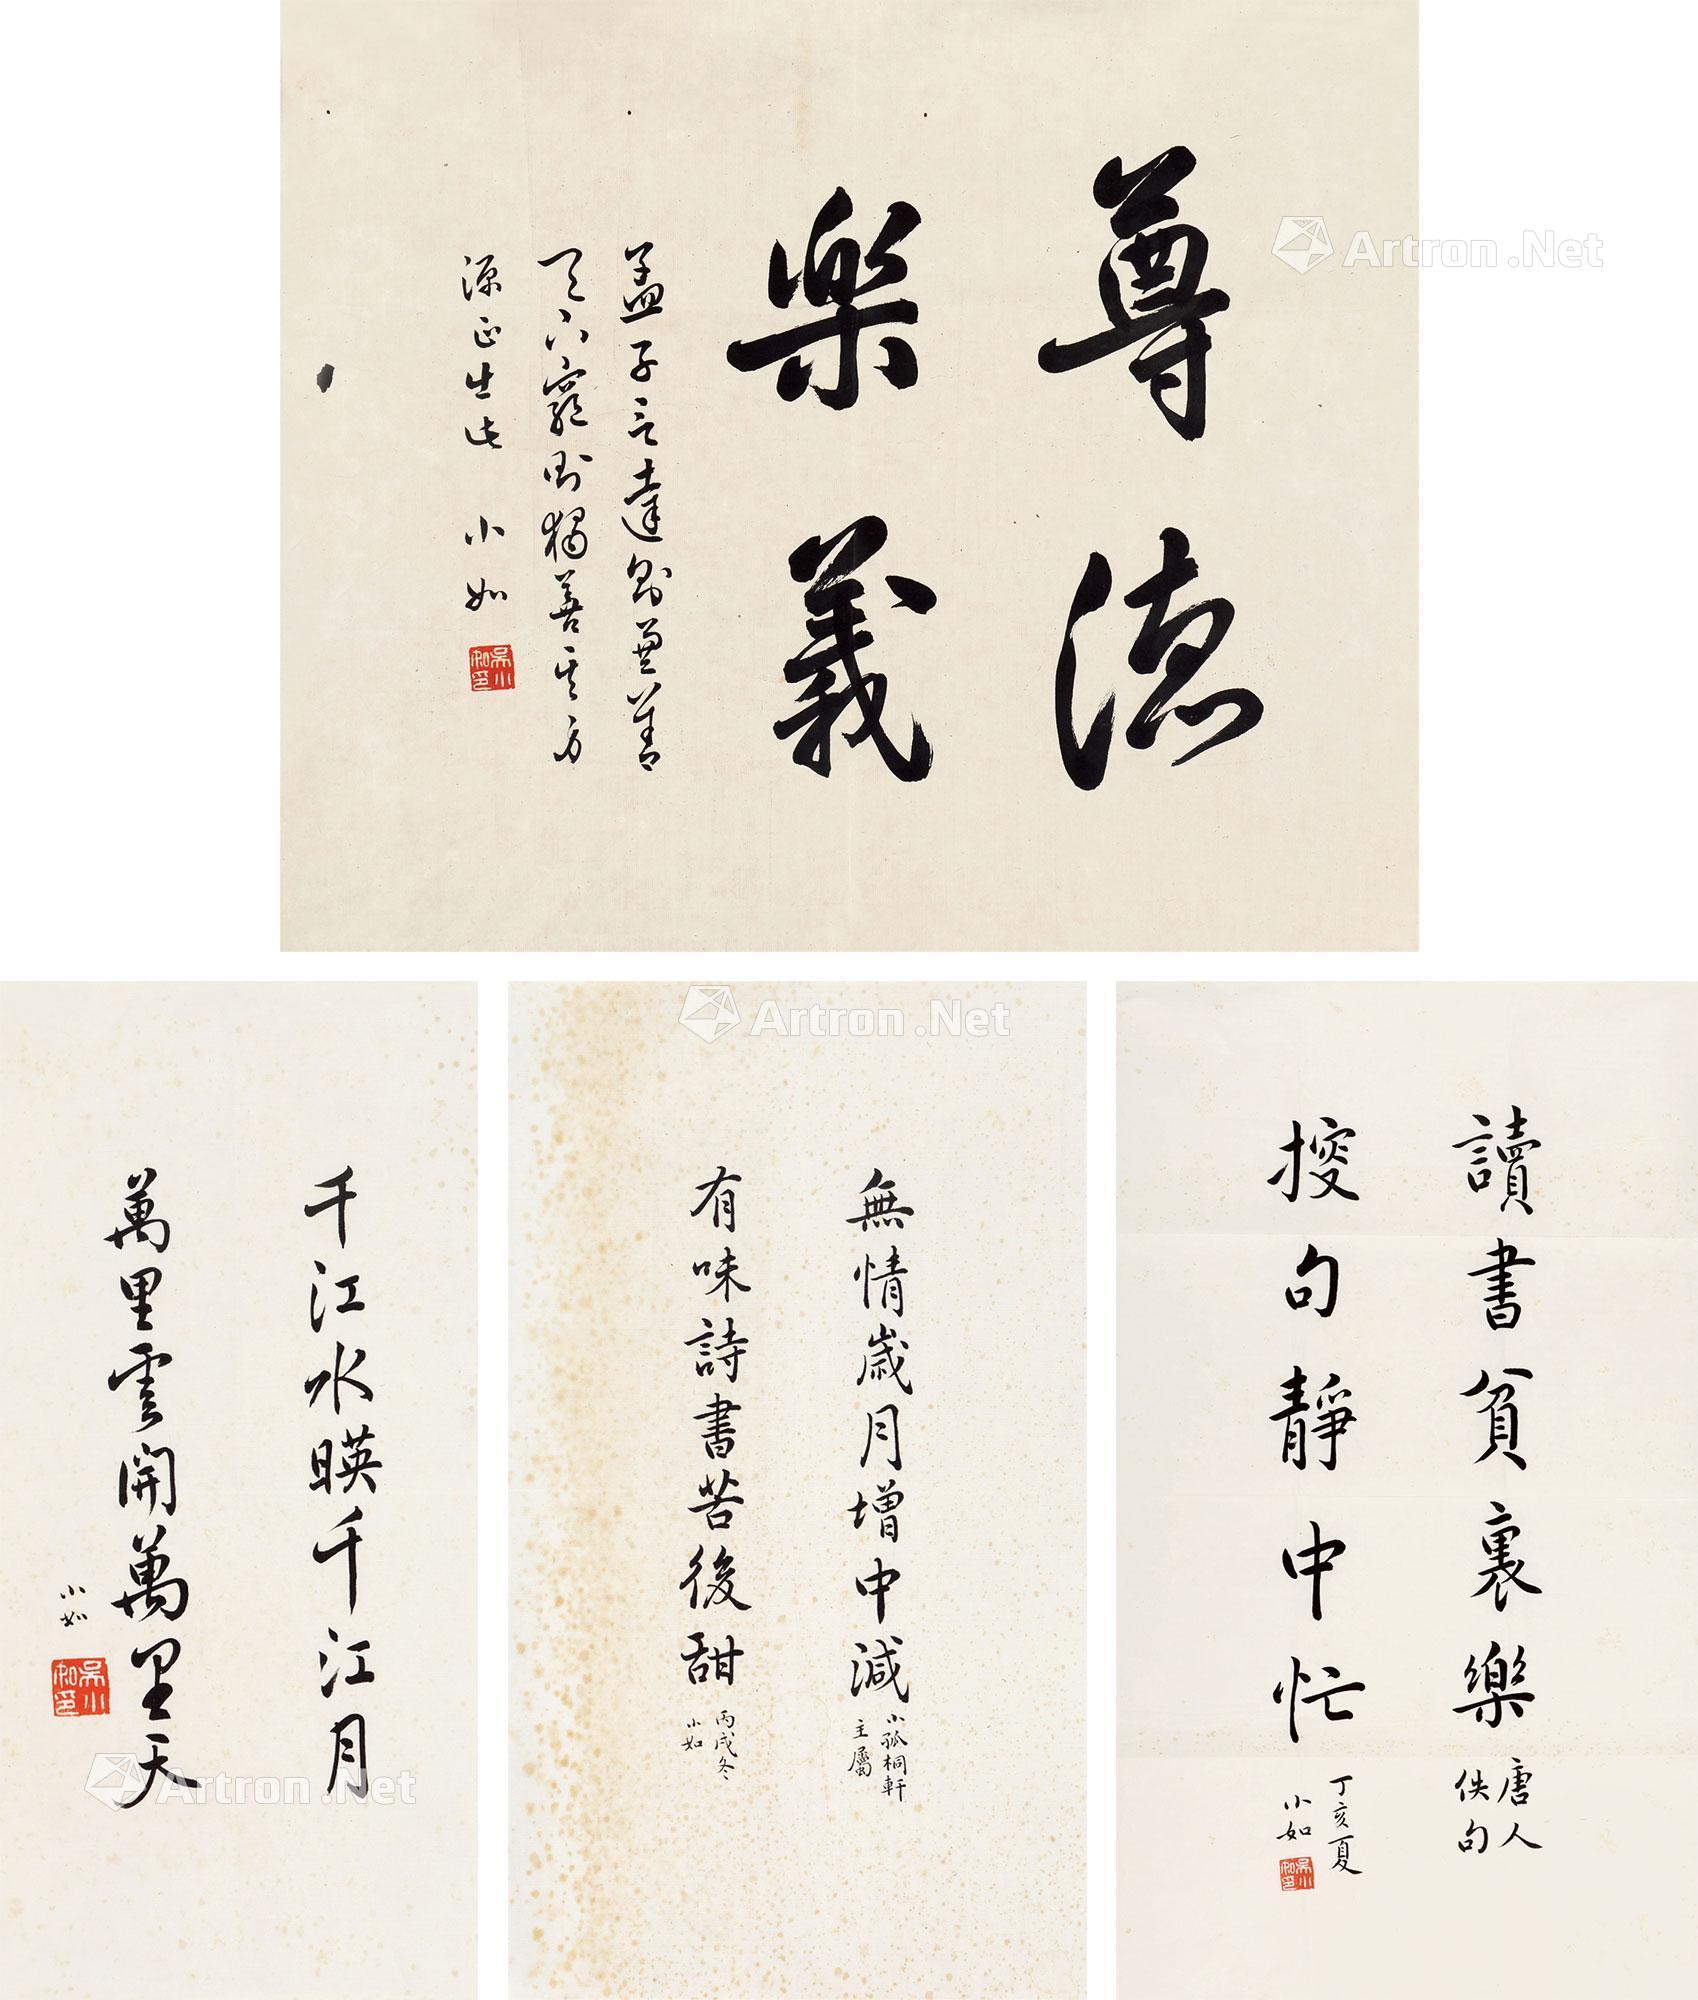 尊德
樂義
孟子言達則兼善
天下窮則獨善其身
源正出此 小如
吳小如印
Artron.Net
Artron.Net
讀書貧裏樂
唐人
佚句
搜句靜中忙
丁亥夏
小如
吳小如印
無情歲月增中減
小孤桐軒
主屬
有味詩書苦後甜
丙戌冬
小如
千江水暎千江月
萬里雲開萬里天
小如
吳小如印
Artron.Net